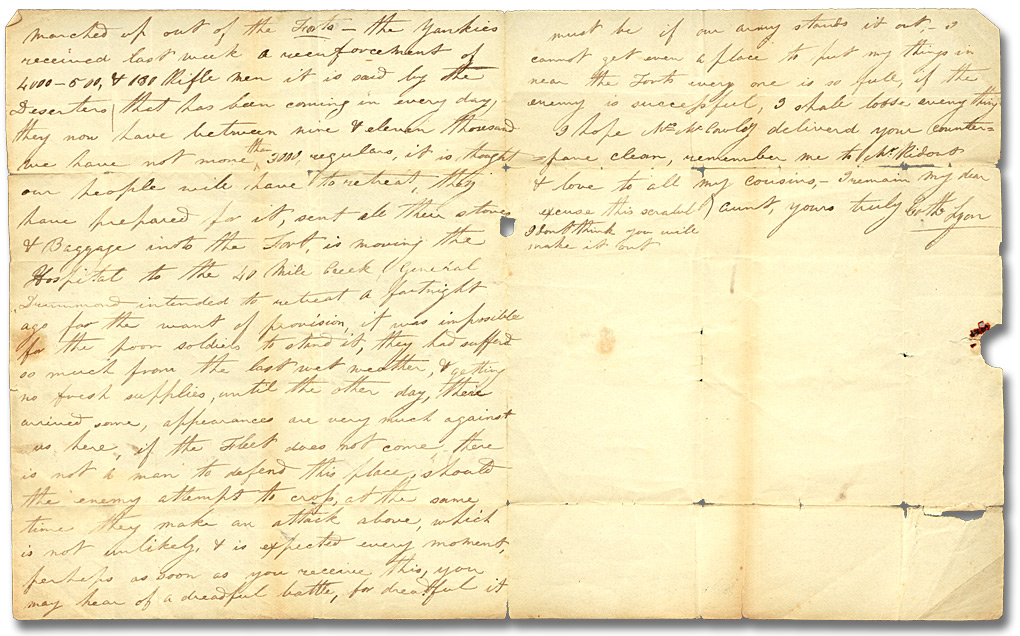 marched up out of the Forts – the Yankies
received last week a reenforcement of
4000 – 500, & 180 Rifle men it is said by the
Deserters) that has been coming in every day,
they now have between nine & eleven thousand
we have not more than 3000, regulars, it is thought
our people will have to retreat, they
have prepared for it, sent all their stores
& Baggage into the Fort is moving the
Hospital to the 40 Mile Creek (General
Drummond intended to retreat a fortnight
ago for the want of provision, it was impossible
for the poor soldiers to stand it, they had sufferd
so much from the last wet weather, & getting
no fresh supplies, until the other day, there
arrived some, appearances are very much against
us here, if the Fleet does not come, there
is not a man to defend this place, should
the enemy attempt to cross, at the same
time they make an attack above, which
is not unlikely, & is expected every moment,
perhaps as soon as you receive this, you
may hear of a dreadful battle, for dreadful it
must be if our army stands it out, – I
cannot get even a place to put my things in
near the Forts every one is so full, if the
enemy is successful, I shall loose every thing
I hope Mr deliverd your counter=
=pane clean, remember me to Mr Ridout
& love to all my cousins, – I remain my dear
excuse this scrabul) aunt, yours truly Cathe Lyon
I dont think you will
make it out